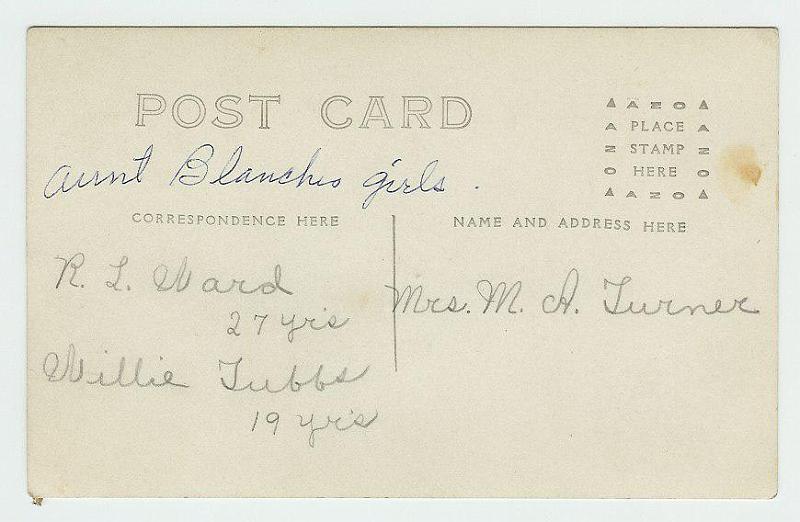 POST CARD
▲ A Z O ▲
PLACE
STAMP
HERE
▲ A Z O ▲
Aunt Blanches girls.
CORRESPONDENCE HERE
NAME AND ADDRESS HERE
R. L. Ward
27 yrs
Willie Tubbs
19 yrs
Mrs. M. A. Turner